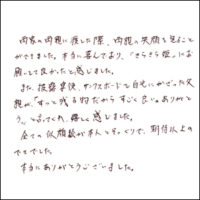 両家の両親に渡した際、両親の笑顔を見ることが
できました。本当に喜んでおり、「きらきら姫」にお
願いして良かったと感じました。
また、披露宴後、サンクスボードを自宅にかざった父
親が、「ずっと残る物だからすごく良い。ありがと
う。」と言ってくれ、嬉しく感じました。
全ての似顔絵が本人とそっくりで、期待以上の
でき でした。
本当にありがとうございました。